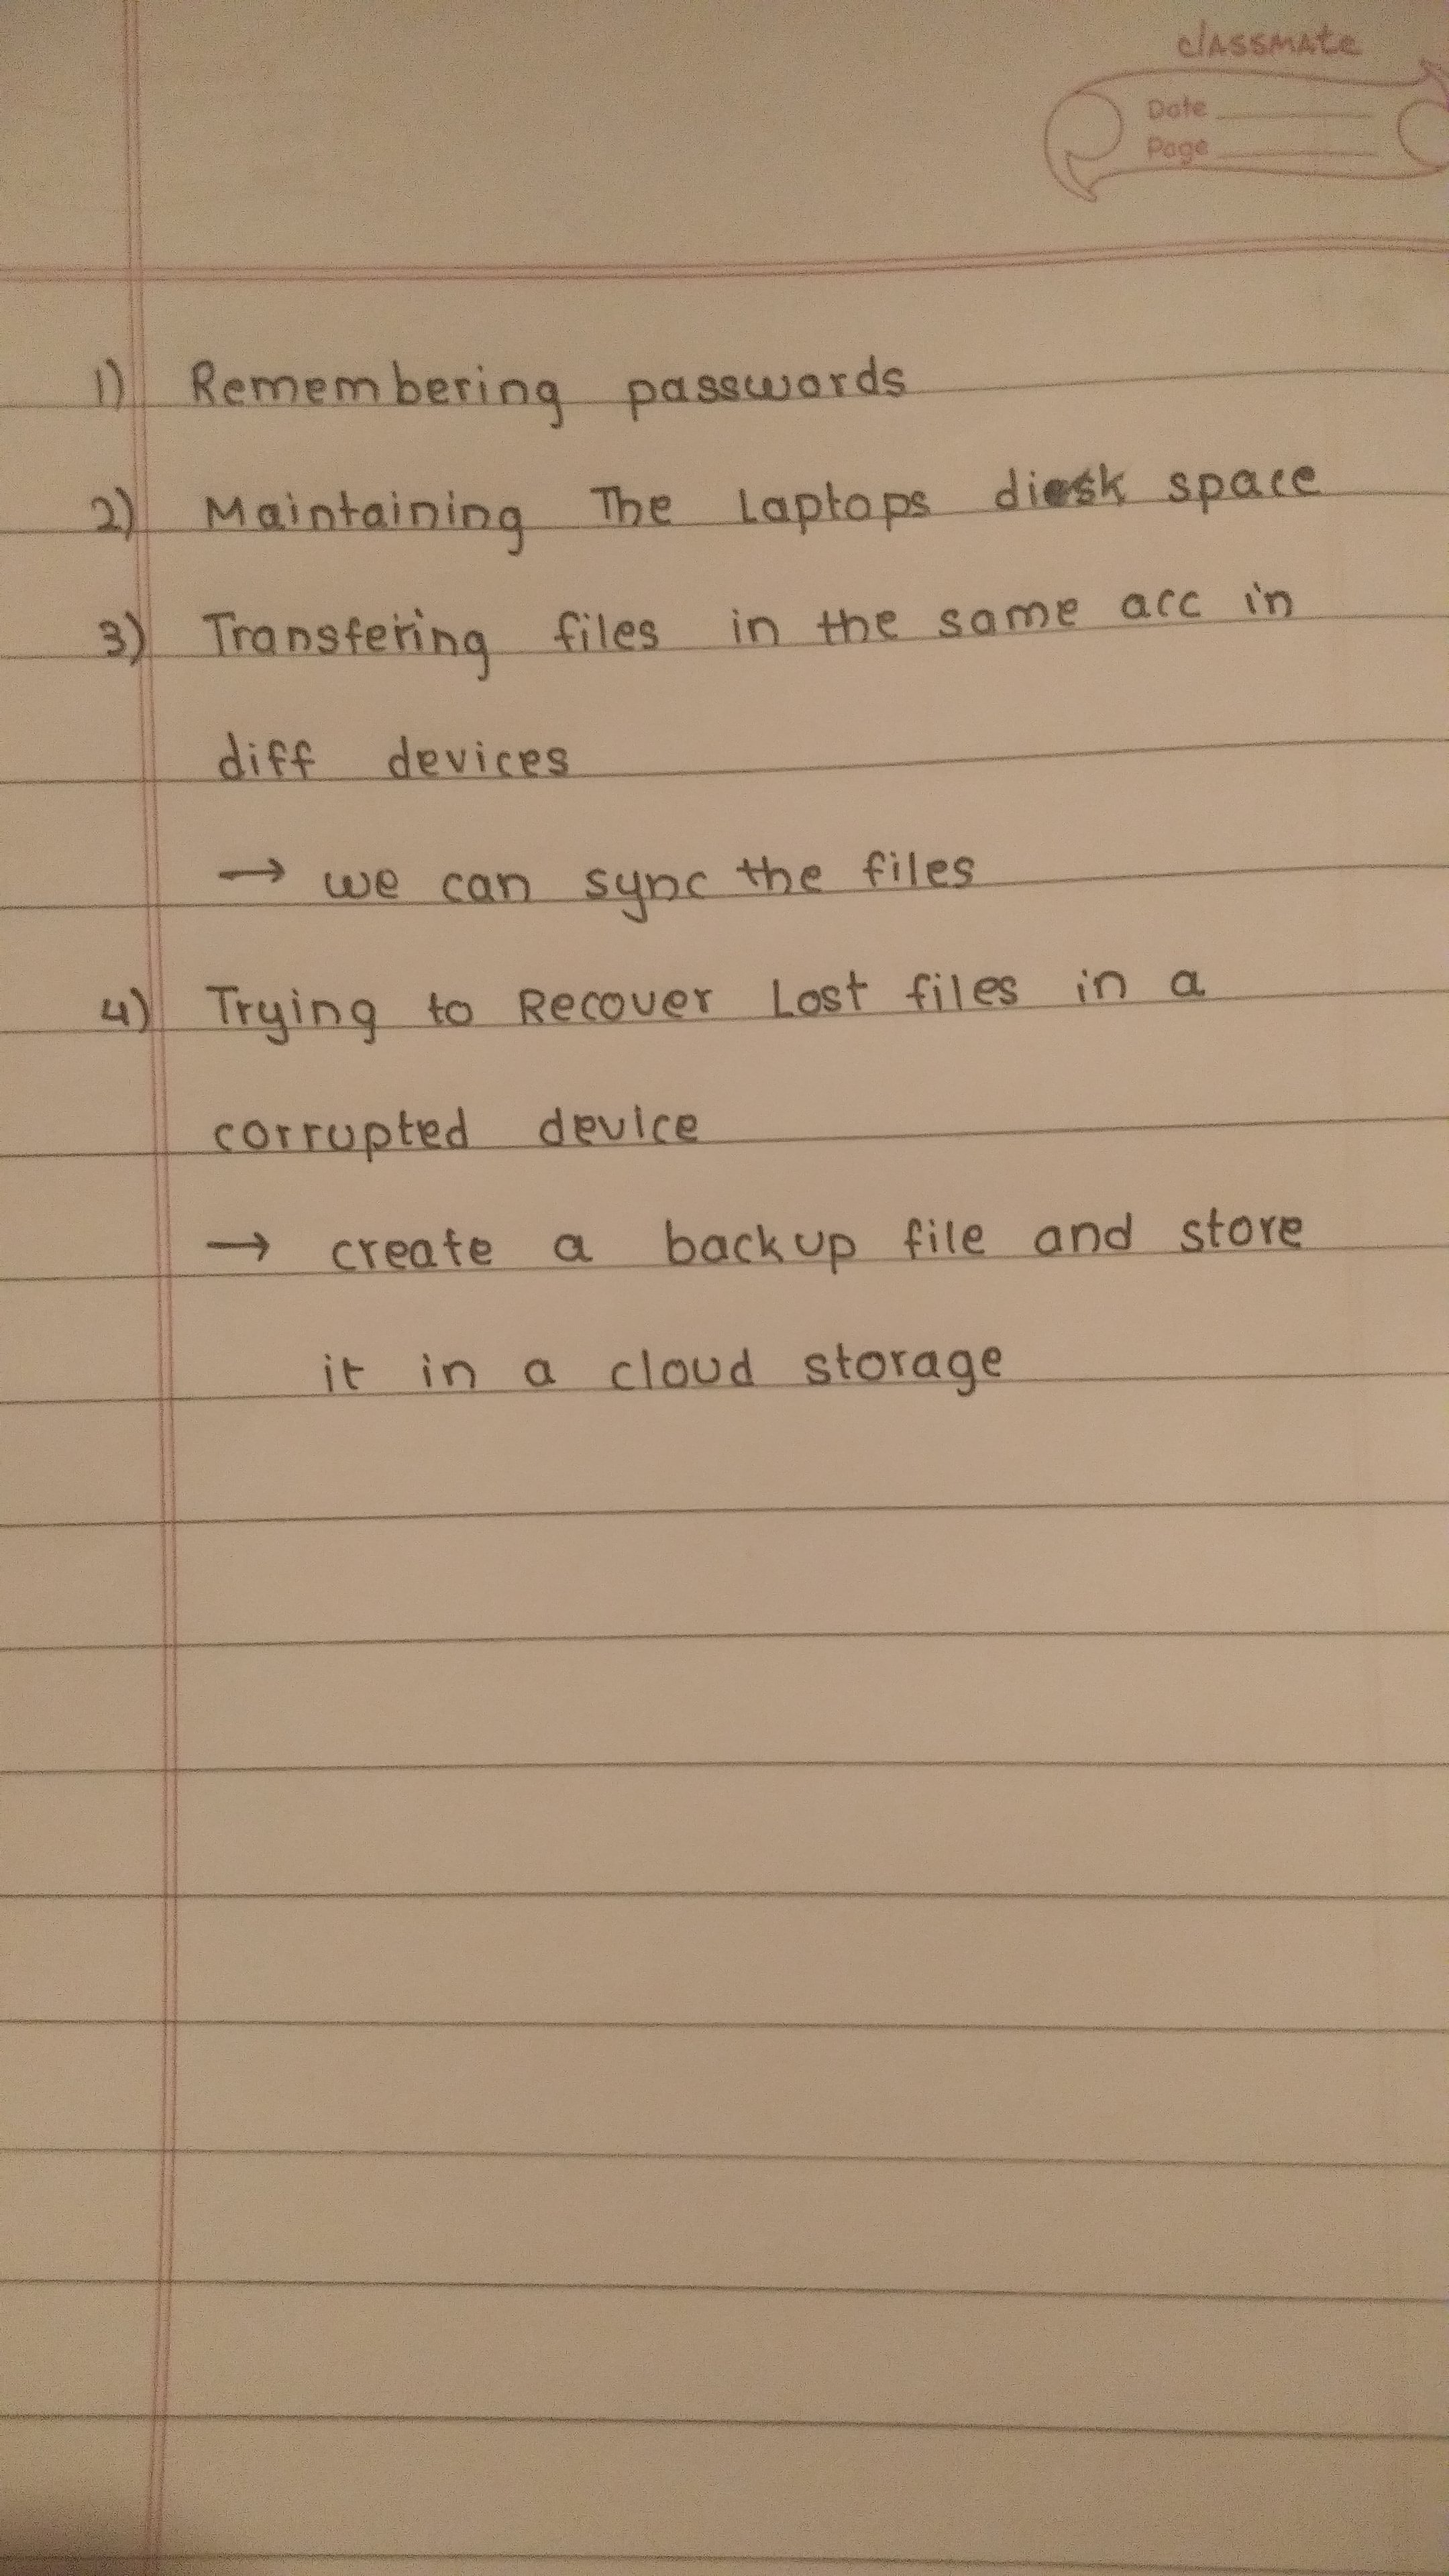 classmate
Date
Page
1) Remembering passwords
2) Maintaining The Laptops disk space
3) Transfering files in the same acc in
diff devices
→ we can sync the files
4) Trying to Recover Lost files in a
corrupted device
→ create a backup file and store
it in a cloud storage